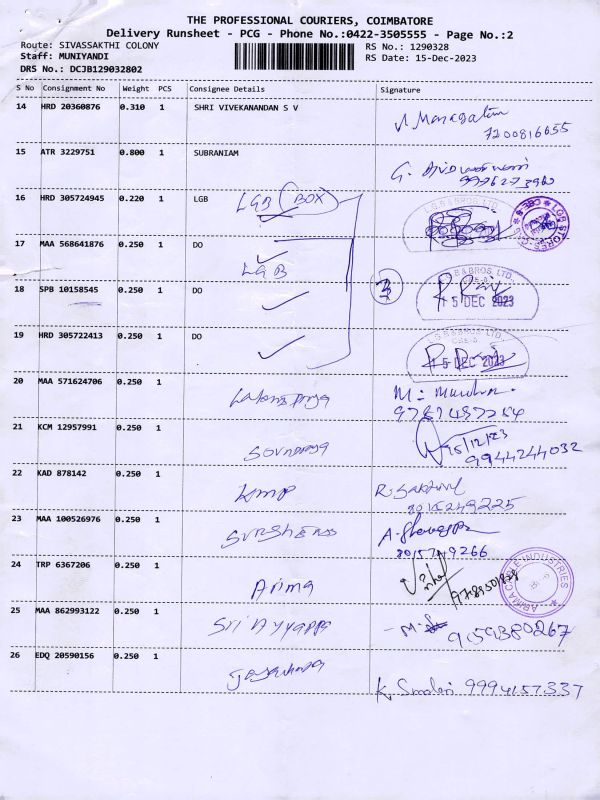 THE PROFESSIONAL COURIERS, COIMBATORE
Delivery Runsheet - PCG - Phone No.:0422-3505555 - Page No.:2
Route: SIVASSAKTHI COLONY
Staff: MUNIYANDI
DRS No.: DCJB129032802
RS No.: 1290328
RS Date: 15-Dec-2023
S No Consignment No Weight PCS Consignee Details Signature
14 HRD 20360876 0.310 1 SHRI VIVEKANANDAN S V
7200816655
15 ATR 3229751 0.800 1 SUBRANIAM
G.
16 HRD 305724945 0.220 1 LGB LGB (BOX)
17 MAA 568641876 0.250 1 DO
LGB
18 SPB 10158545 0.250 1 DO
3
L.G.B & BROS. LTD.
15 DEC 2023
19 HRD 305722413 0.250 1 DO
L.G.B & BROS. LTD.
15 DEC 2023
20 MAA 571624706 0.250 1
21 KCM 12957991 0.250 1
15/12/23
9944244032
22 KAD 878142 0.250 1 KMP
8015249225
23 MAA 100526976 0.250 1
24 TRP 6367206 0.250 1 Arima
ARIMA CABLE INDUSTRIES
25 MAA 862993122 0.250 1 Sri Ayyappa
9159380267
26 EDQ 20590156 0.250 1
9994157337